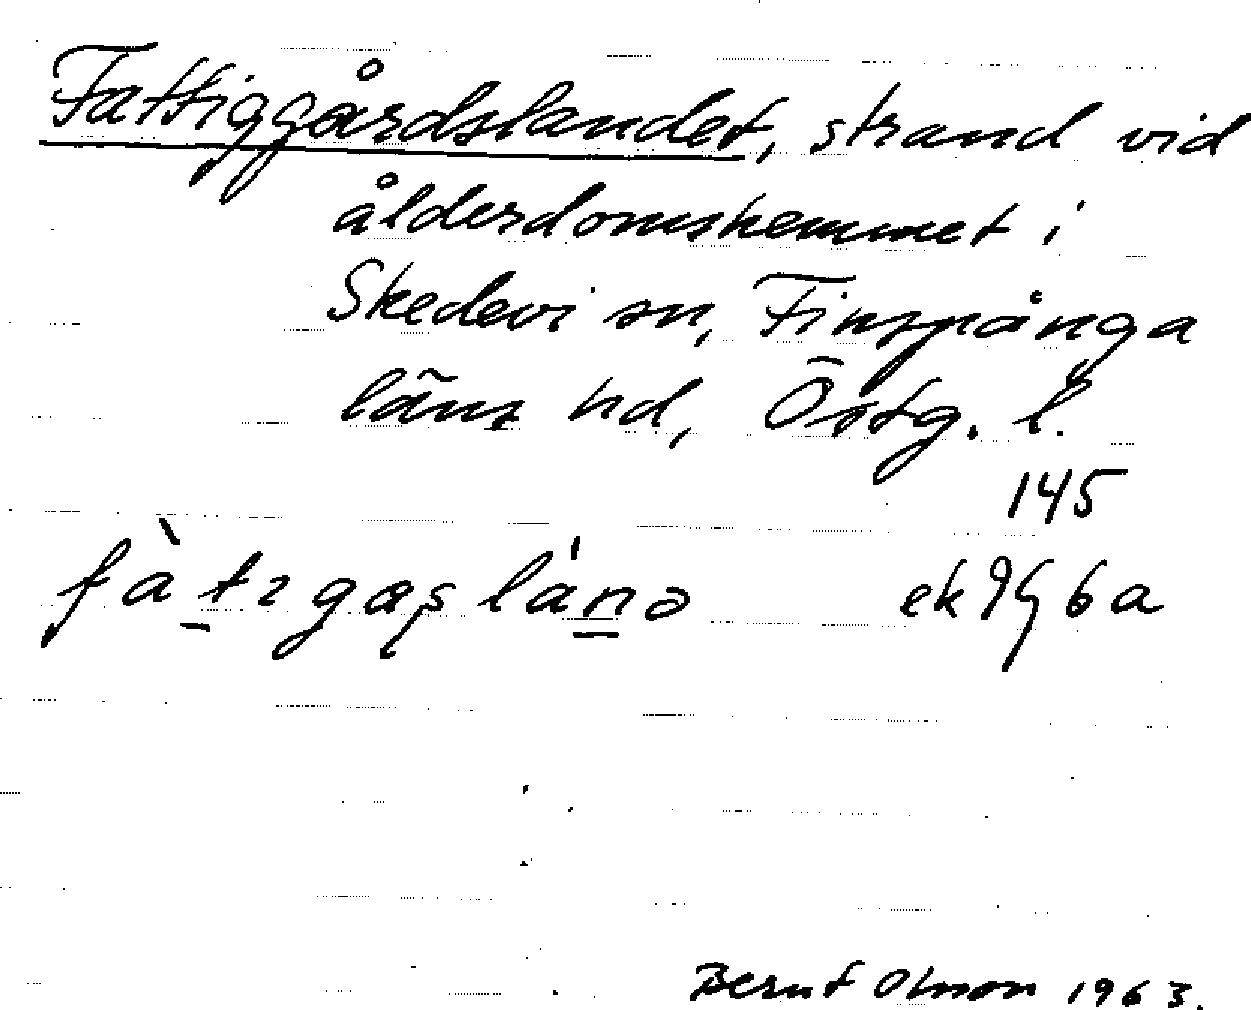 Fattiggårdslandet, strand vid
ålderdomshemmet i
Skedevi sn, Finspånga
läns hd, Östg. l.
145
ek 9G 6a
Bernt Olsson 1963.